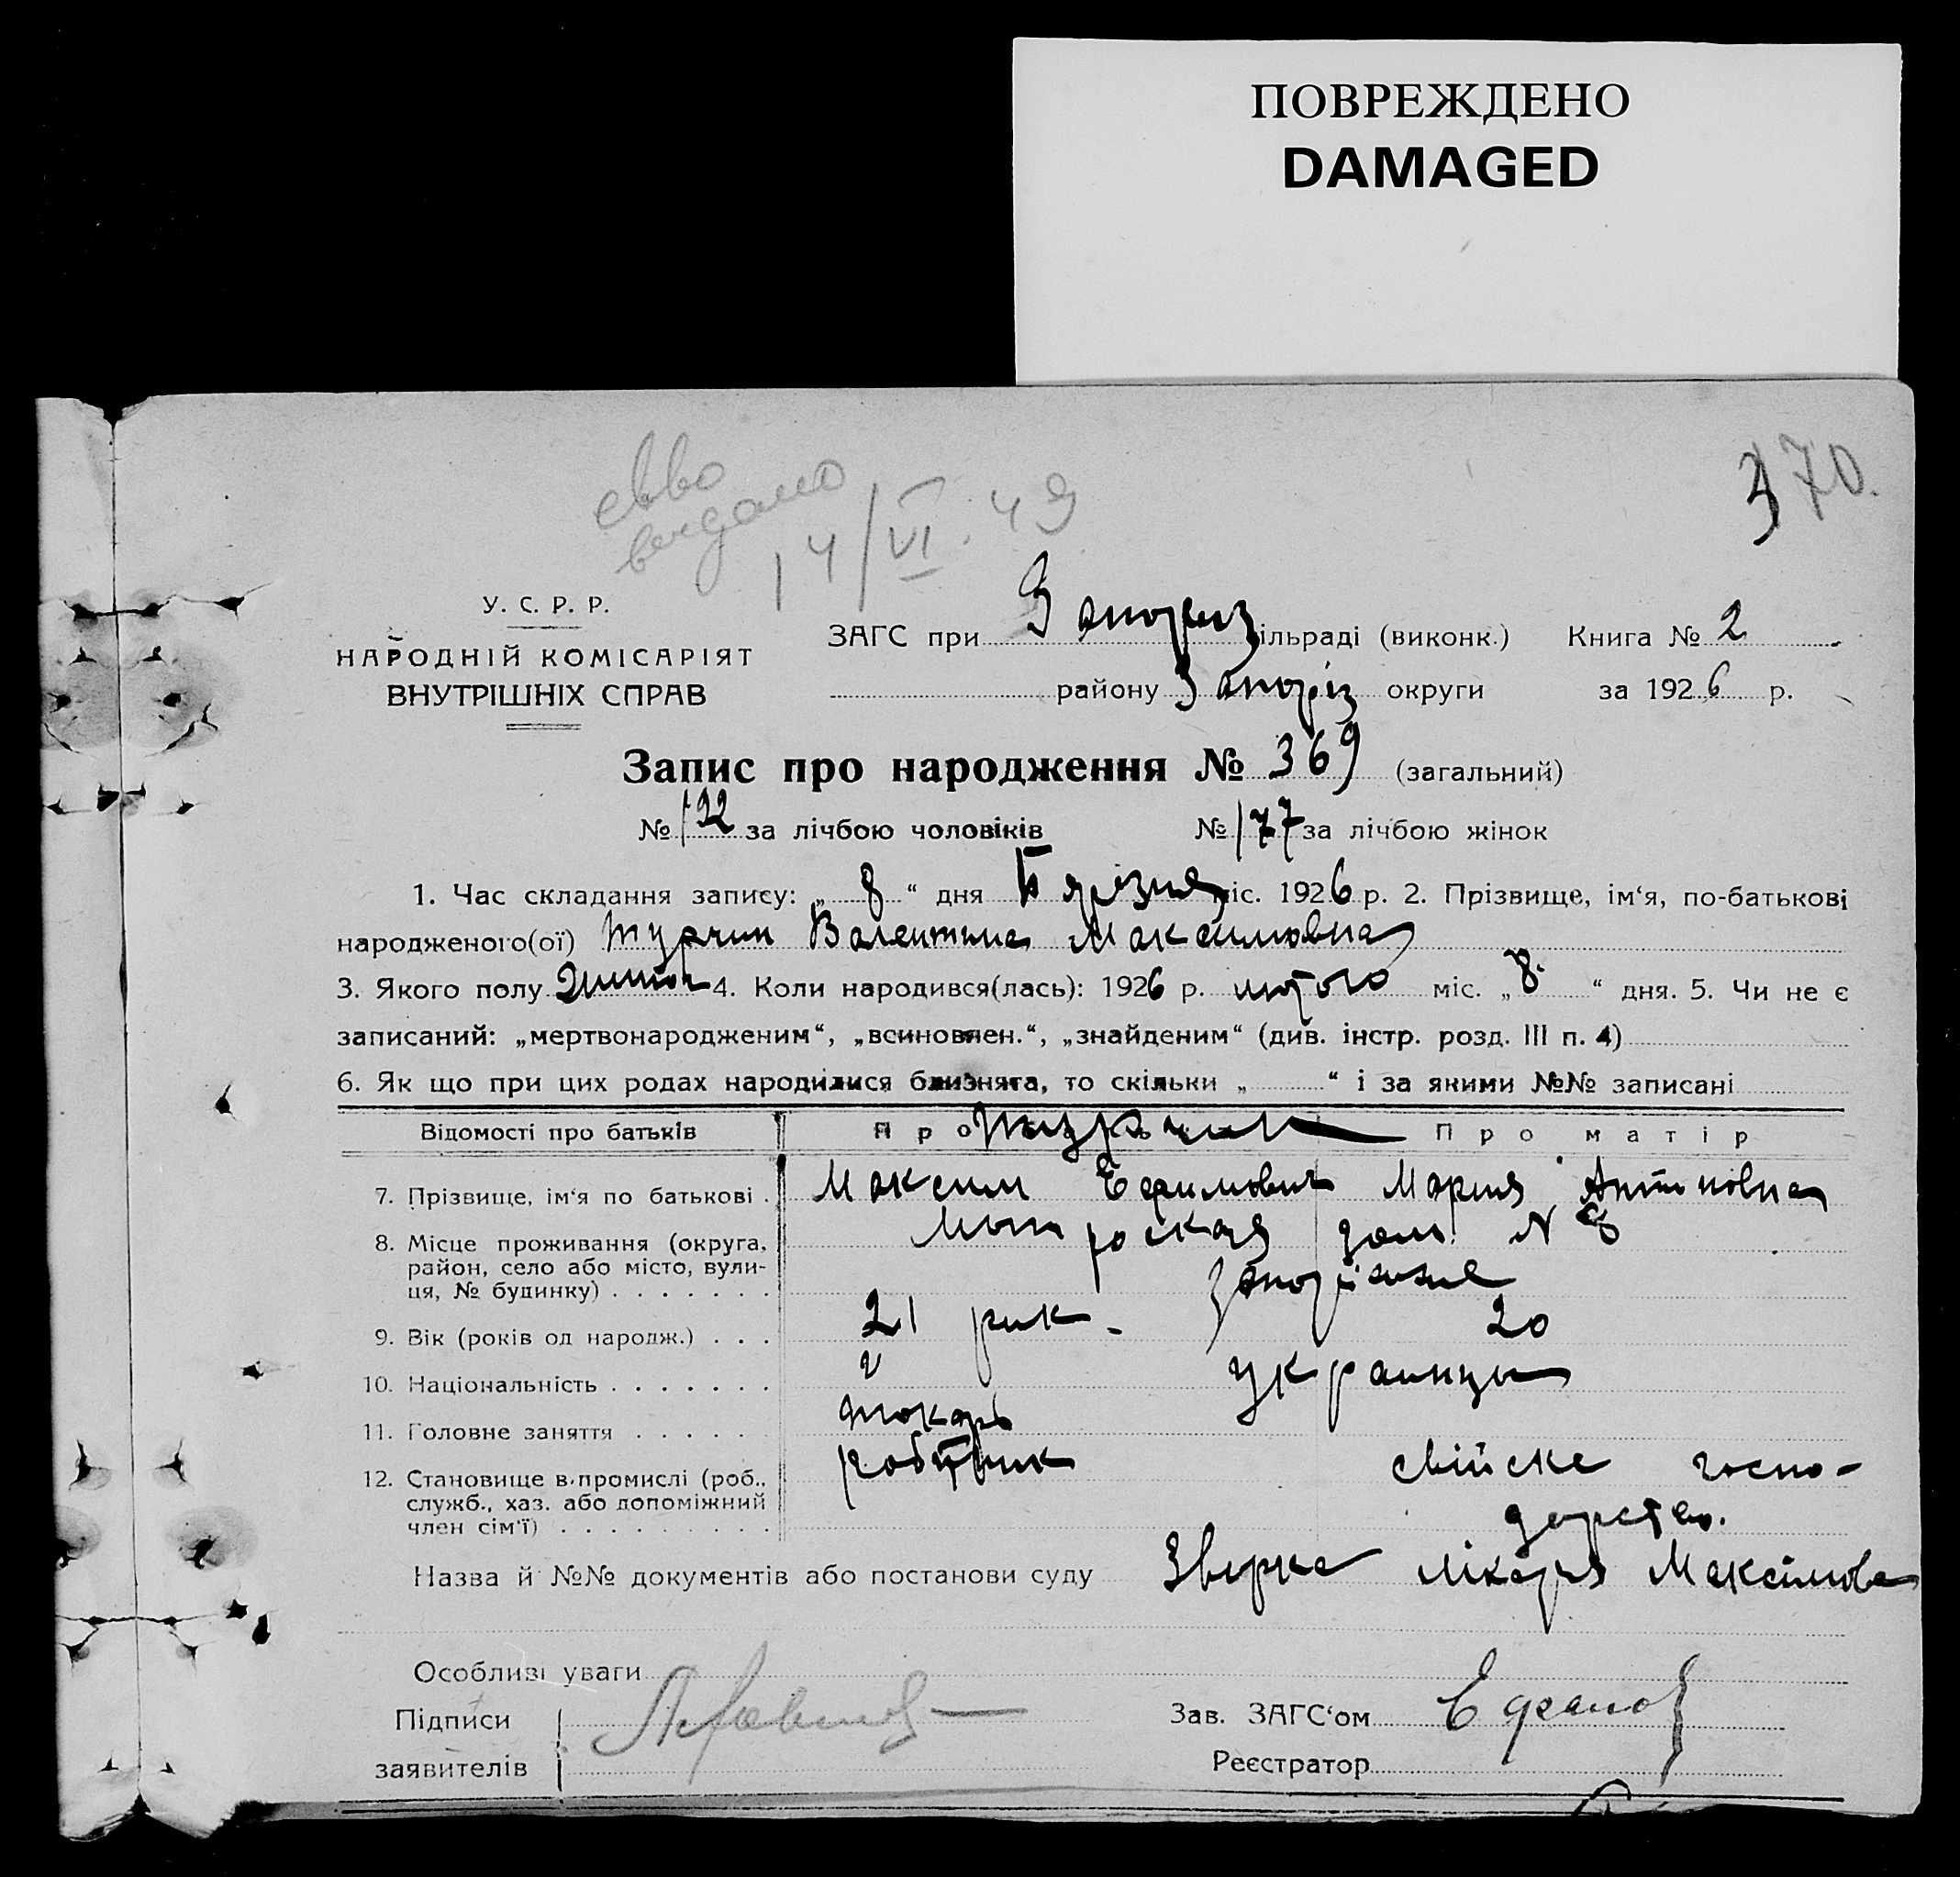 ПОВРЕЖДЕНО
DAMAGED
370.
выдано
14/VI.49
У. С. Р. Р.
НАРОДНІЙ КОМІСАРІЯТ
ВНУТРІШНІХ СПРАВ
ЗАГС при Запориз ільраді (виконк.) Книга № 2
району Запоріз округи за 1926 р.
Запис про народження № 369 (загальний)
№ 192 за лічбою чоловіків № 177 за лічбою жінок
1. Час складання запису: „ 8 “ дня міс. 1926 р. 2. Прізвище, ім‘я, по-батькові
народженого(ої) Турчин Валентина Максимовна
3. Якого полу 4. Коли народився(лась): 1926 р. лютого міс. „ 8 “ дня. 5. Чи не є
записаний: „мертвонародженим“, „всиновлен.“, „знайденим“ (див. інстр. розд. III п. 4)
6. Як що при цих родах народилися близнята, то скільки „ “ і за якими №№ записані
Відомості про батьків Про Турчин Про матір
7. Прізвище, ім‘я по батькові . Максим Ефимович Мария Антоновна
8. Місце проживання (округа, район, село або місто, вулиця, № будинку) . . . . . . . дом N 8
9. Вік (років од народж.) . . . 21 рик - 20
10. Національність . . . . . . . Украинцы
11. Головне заняття . . . . . . токарь
12. Становище в промислі (роб., служб., хаз. або допоміжний член сім‘ї) . . . . . . . . . робітник свійске госпо-
дарство.
Назва й №№ документів або постанови суду лікаря Максімова
Особливі уваги
Підписи Зав. ЗАГС‘ом
заявителів Реєстратор